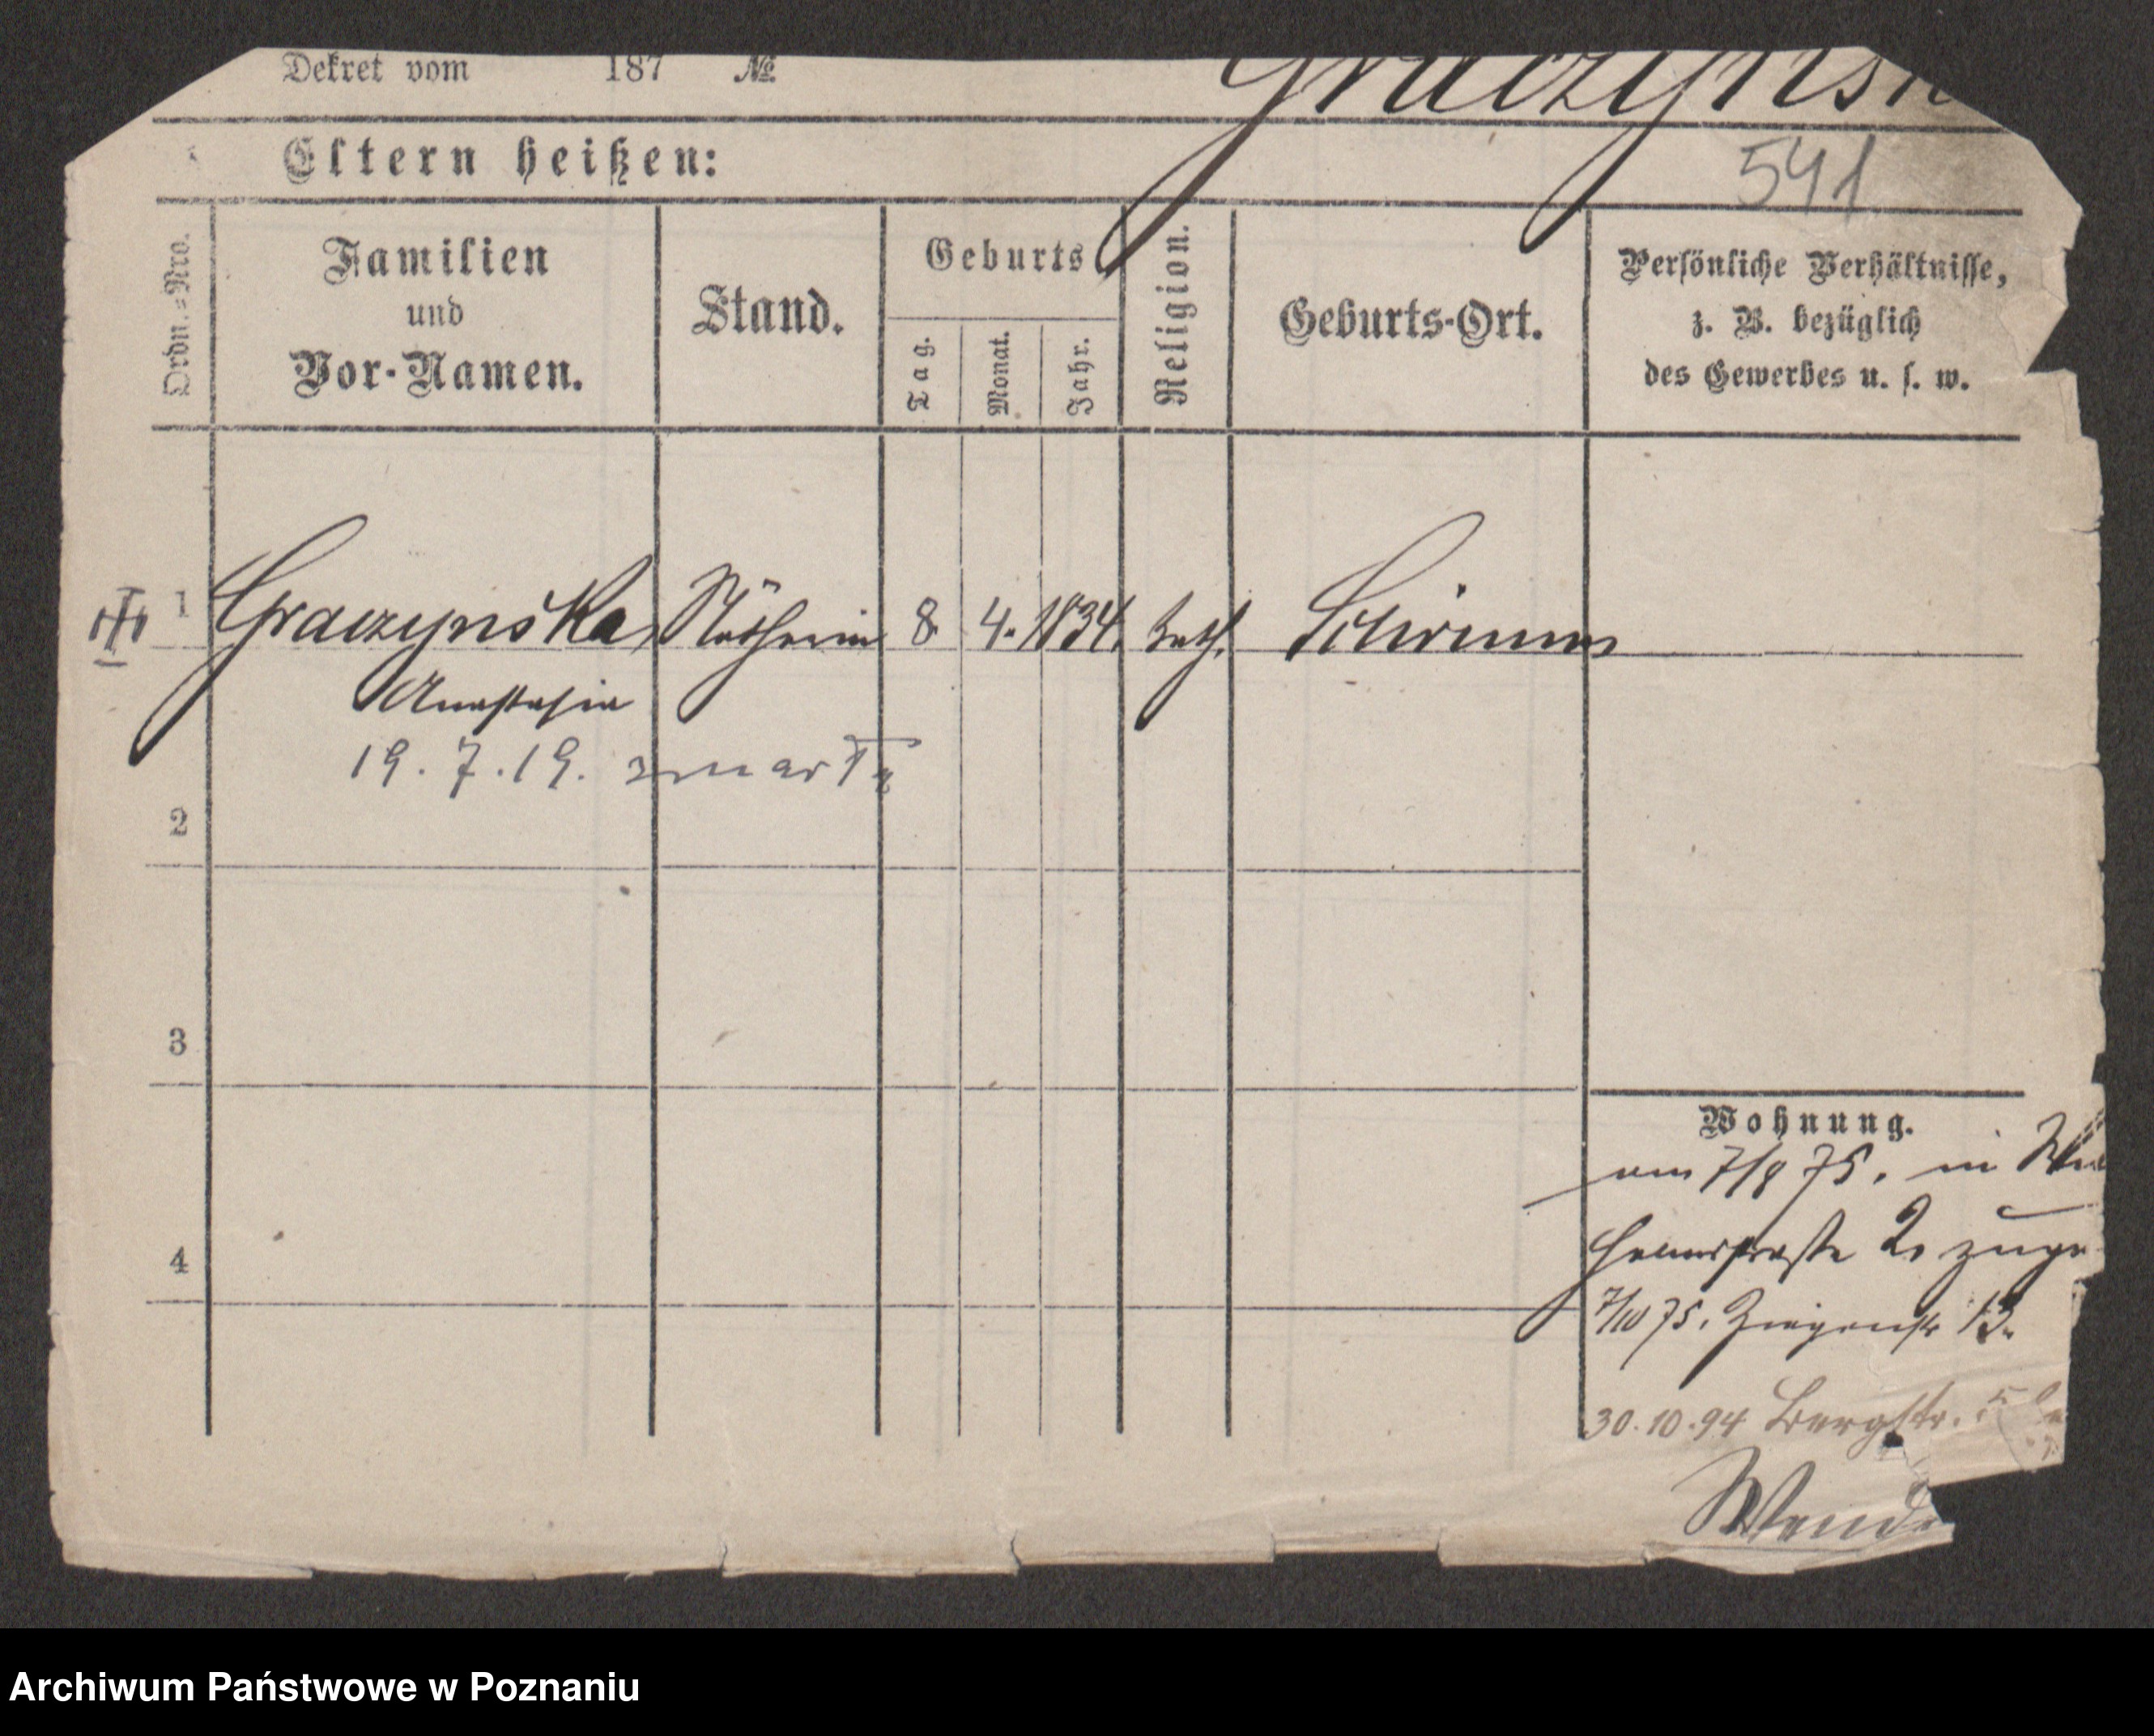 Dekret vom 187 №
Graczynsk
541
Eltern heißen:
Ordn.-Nro.
Familien
und
Vor-Namen.
Stand.
Geburts
Tag.
Monat.
Jahr.
Religion.
Geburts-Ort.
Persönliche Verhältnisse,
z. B. bezüglich
des Gewerbes u. s. w.
1 Graczynska Nätherin 8. 4. 1834. kath. Schrimm
Anastasia
19.7.19. zmarła
2
3
4
Wohnung.
am 7/8 75. in
2 zuge
7/10 75. Ziegenstr 13.
30.10.94 Bergstr. 5
Wende
Archiwum Państwowe w Poznaniu